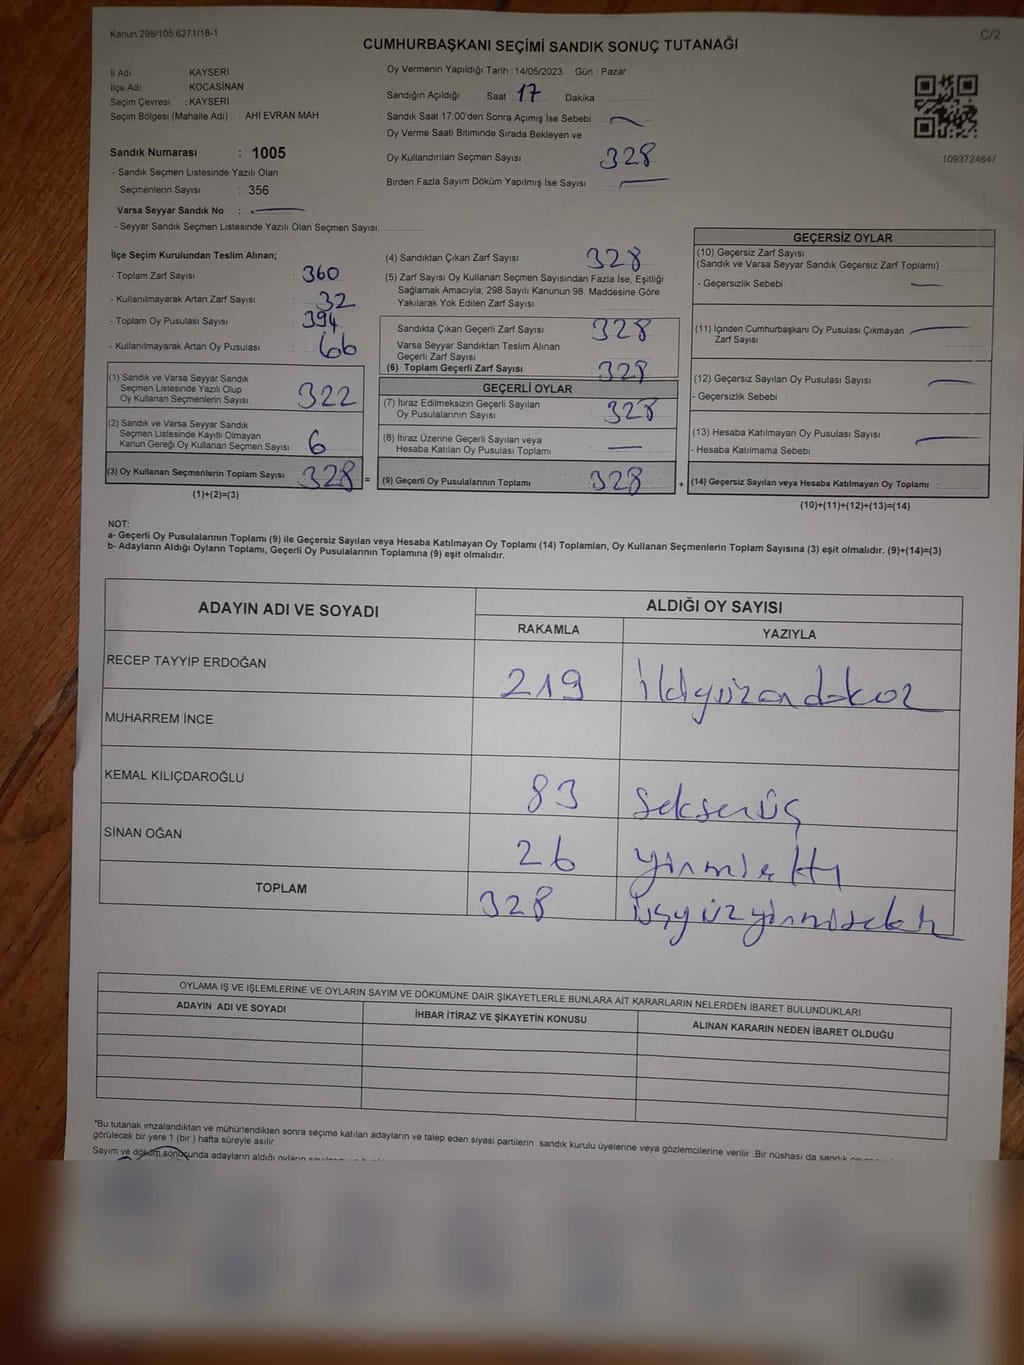 Kanun,298/105;6271/18-1
C/2
CUMHURBAŞKANI SEÇİMİ SANDIK SONUÇ TUTANAĞI
İl Adı : KAYSERİ
İlçe Adı : KOCASİNAN
Seçim Çevresi : KAYSERİ
Seçim Bölgesi (Mahalle Adı) : AHİ EVRAN MAH
Sandık Numarası : 1005
- Sandık Seçmen Listesinde Yazılı Olan
Seçmenlerin Sayısı : 356
Varsa Seyyar Sandık No :
- Seyyar Sandık Seçmen Listesinde Yazılı Olan Seçmen Sayısı:
Oy Vermenin Yapıldığı Tarih : 14/05/2023 Gün : Pazar
Sandığın Açıldığı Saat : 17 Dakika :
Sandık Saat 17:00'den Sonra Açımış İse Sebebi :
Oy Verme Saati Bitiminde Sırada Bekleyen ve
Oy Kullandırılan Seçmen Sayısı 328
Birden Fazla Sayım Döküm Yapılmış İse Sayısı :
109372484/
İlçe Seçim Kurulundan Teslim Alınan;
- Toplam Zarf Sayısı : 360
- Kullanılmayarak Artan Zarf Sayısı : 32
- Toplam Oy Pusulası Sayısı : 394
- Kullanılmayarak Artan Oy Pusulası : 66
(1) Sandık ve Varsa Seyyar Sandık
Seçmen Listesinde Yazılı Olup
Oy Kullanan Seçmenlerin Sayısı : 322
(2) Sandık ve Varsa Seyyar Sandık
Seçmen Listesinde Kayıtlı Olmayan
Kanun Gereği Oy Kullanan Seçmen Sayısı : 6
(3) Oy Kullanan Seçmenlerin Toplam Sayısı : 328 =
(1)+(2)=(3)
(4) Sandıktan Çıkan Zarf Sayısı : 328
(5) Zarf Sayısı Oy Kullanan Seçmen Sayısından Fazla İse, Eşitliği
Sağlamak Amacıyla; 298 Sayılı Kanunun 98. Maddesine Göre
Yakılarak Yok Edilen Zarf Sayısı :
Sandıkta Çıkan Geçerli Zarf Sayısı : 328
Varsa Seyyar Sandıktan Teslim Alınan
Geçerli Zarf Sayısı :
(6) Toplam Geçerli Zarf Sayısı : 328
GEÇERLİ OYLAR
(7) İtiraz Edilmeksizin Geçerli Sayılan
Oy Pusulalarının Sayısı : 328
(8) İtiraz Üzerine Geçerli Sayılan veya
Hesaba Katılan Oy Pusulası Toplamı :
(9) Geçerli Oy Pusulalarının Toplamı : 328 +
GEÇERSİZ OYLAR
(10) Geçersiz Zarf Sayısı
(Sandık ve Varsa Seyyar Sandık Geçersiz Zarf Toplamı) :
- Geçersizlik Sebebi :
(11) İçinden Cumhurbaşkanı Oy Pusulası Çıkmayan
Zarf Sayısı :
(12) Geçersiz Sayılan Oy Pusulası Sayısı :
- Geçersizlik Sebebi :
(13) Hesaba Katılmayan Oy Pusulası Sayısı :
- Hesaba Katılmama Sebebi :
(14) Geçersiz Sayılan veya Hesaba Katılmayan Oy Toplamı :
(10)+(11)+(12)+(13)=(14)
NOT:
a- Geçerli Oy Pusulalarının Toplamı (9) ile Geçersiz Sayılan veya Hesaba Katılmayan Oy Toplamı (14) Toplamları, Oy Kullanan Seçmenlerin Toplam Sayısına (3) eşit olmalıdır. (9)+(14)=(3)
b- Adayların Aldığı Oyların Toplamı, Geçerli Oy Pusulalarının Toplamına (9) eşit olmalıdır.
ADAYIN ADI VE SOYADI ALDIĞI OY SAYISI
RAKAMLA YAZIYLA
RECEP TAYYİP ERDOĞAN 219 İkiyüzondokuz
MUHARREM İNCE
KEMAL KILIÇDAROĞLU 83 seksenüç
SİNAN OĞAN 26 yirmialtı
TOPLAM 328 üçyüzyirmisekiz
OYLAMA İŞ VE İŞLEMLERİNE VE OYLARIN SAYIM VE DÖKÜMÜNE DAİR ŞİKAYETLERLE BUNLARA AİT KARARLARIN NELERDEN İBARET BULUNDUKLARI
ADAYIN ADI VE SOYADI İHBAR İTİRAZ VE ŞİKAYETİN KONUSU ALINAN KARARIN NEDEN İBARET OLDUĞU
*Bu tutanak imzalandıktan ve mühürlendikten sonra seçime katılan adayların ve talep eden siyasi partilerin sandık kurulu üyelerine veya gözlemcilerine verilir. Bir nüshası da sandık
görülecek bir yere 1 (bir) hafta süreyle asılır.
Sayım ve döküm sonucunda adayların aldığı oyların